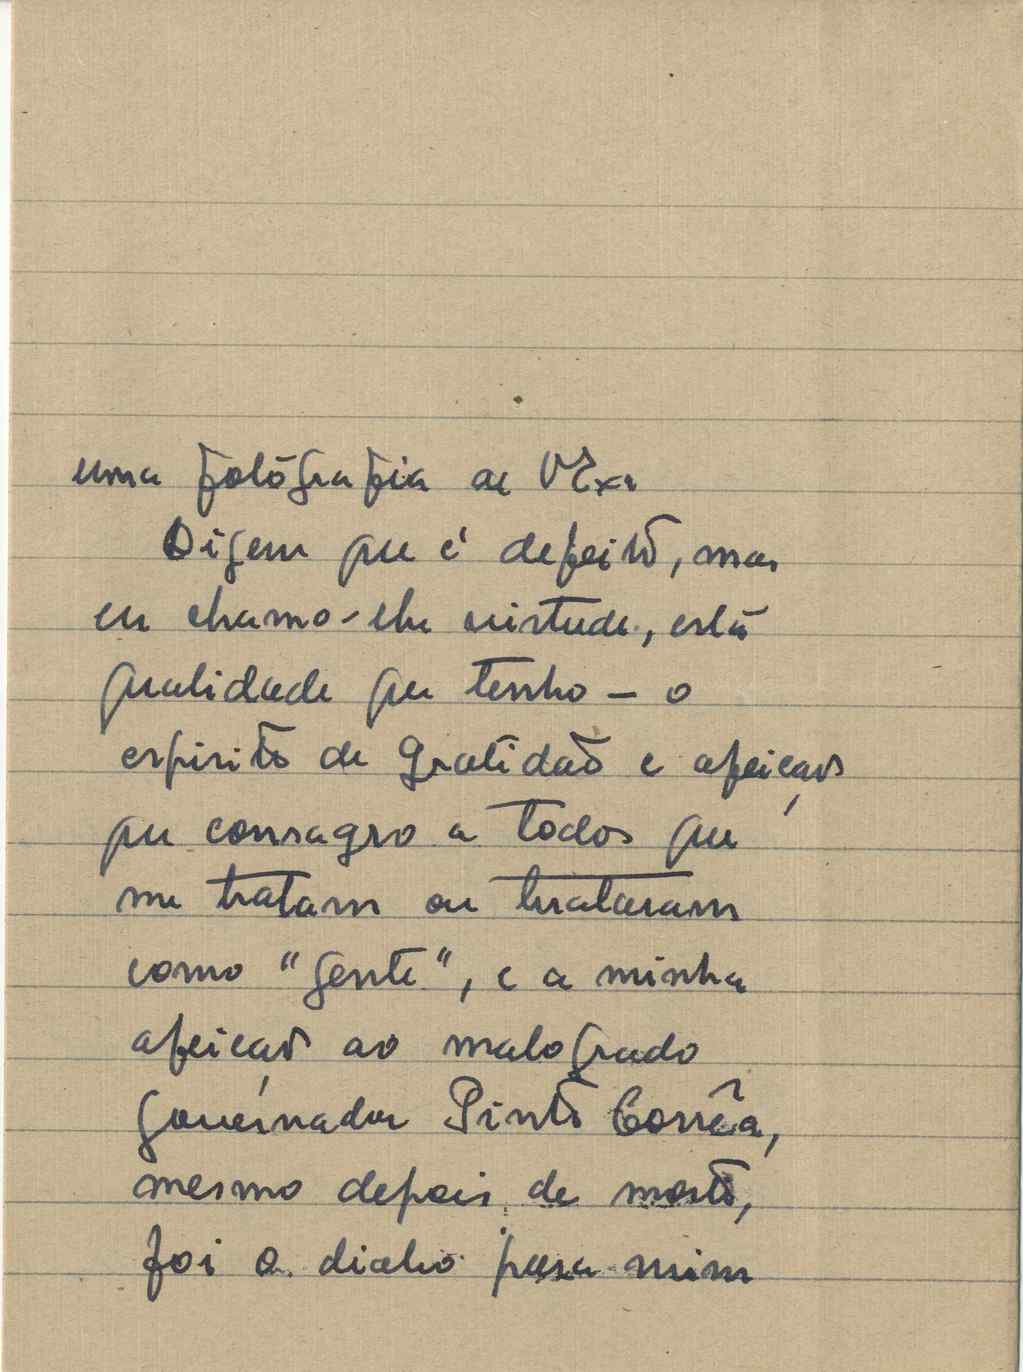 uma fotógrafia de VExa
Dizem que é defeito, mas
eu chamo-lhe virtude, esta
qualidade que tenho - o
espirito de gratidão e afeição
que consagro a todos que
me tratam ou trataram
como "gente", e a minha
afeição ao malogrado
governador Pinto Corrêa,
mesmo depois de morto,
foi o diabo para mim